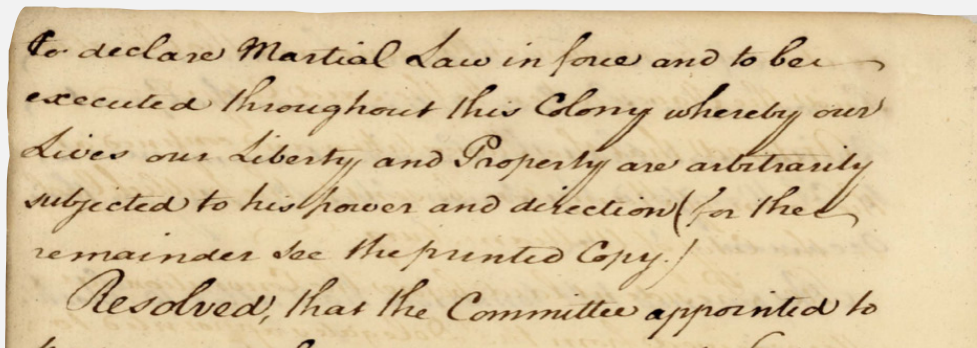 to declare Martial Law in force and to be
executed throughout this Colony whereby our
Lives our Liberty and Property are arbitrarily
subjected to his power and direction (for the
remainder see the printed Copy.)
Resolved, that the Committee appointed to